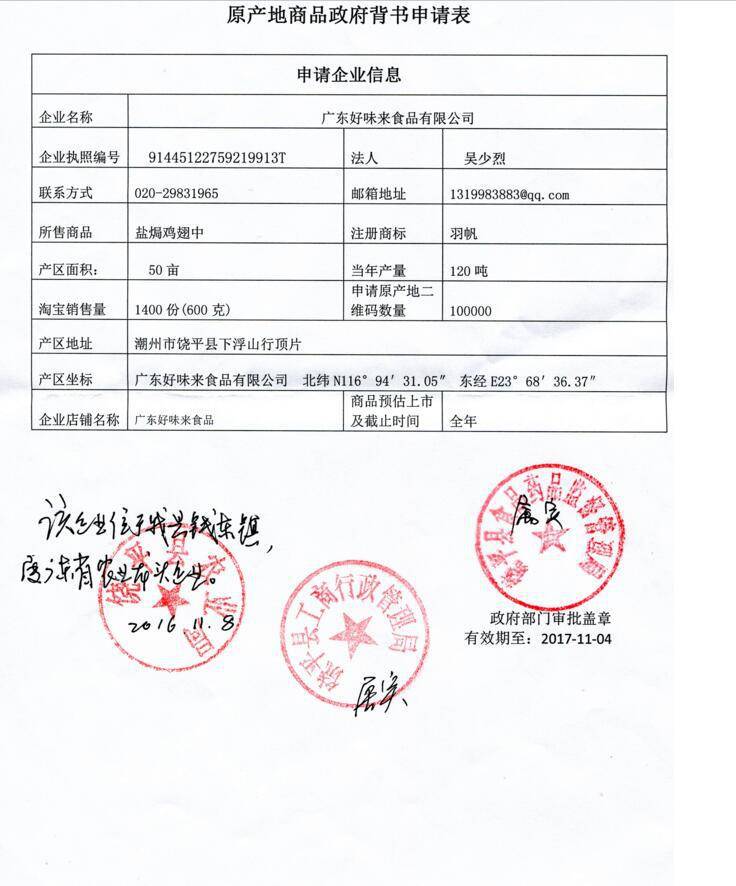 原产地商品政府背书申请表
申请企业信息
企业名称 广东好味来食品有限公司
企业执照编号 91445122759219913T 法人 吴少烈
联系方式 020-29831965 邮箱地址 1319983883@qq.com
所售商品 盐焗鸡翅中 注册商标 羽帆
产区面积： 50亩 当年产量 120吨
淘宝销售量 1400份(600克) 申请原产地二维码数量 100000
产区地址 潮州市饶平县下浮山行顶片
产区坐标 广东好味来食品有限公司 北纬N116°94′31.05″ 东经E23°68′36.37″
企业店铺名称 广东好味来食品 商品预估上市及截止时间 全年
该企业位于我县钱东镇，
属广东省农业龙头企业。
2016.11.8
饶平县农业局
饶平县工商行政管理局
属实
饶平县食品药品监督管理局
属实
政府部门审批盖章
有效期至：2017-11-04